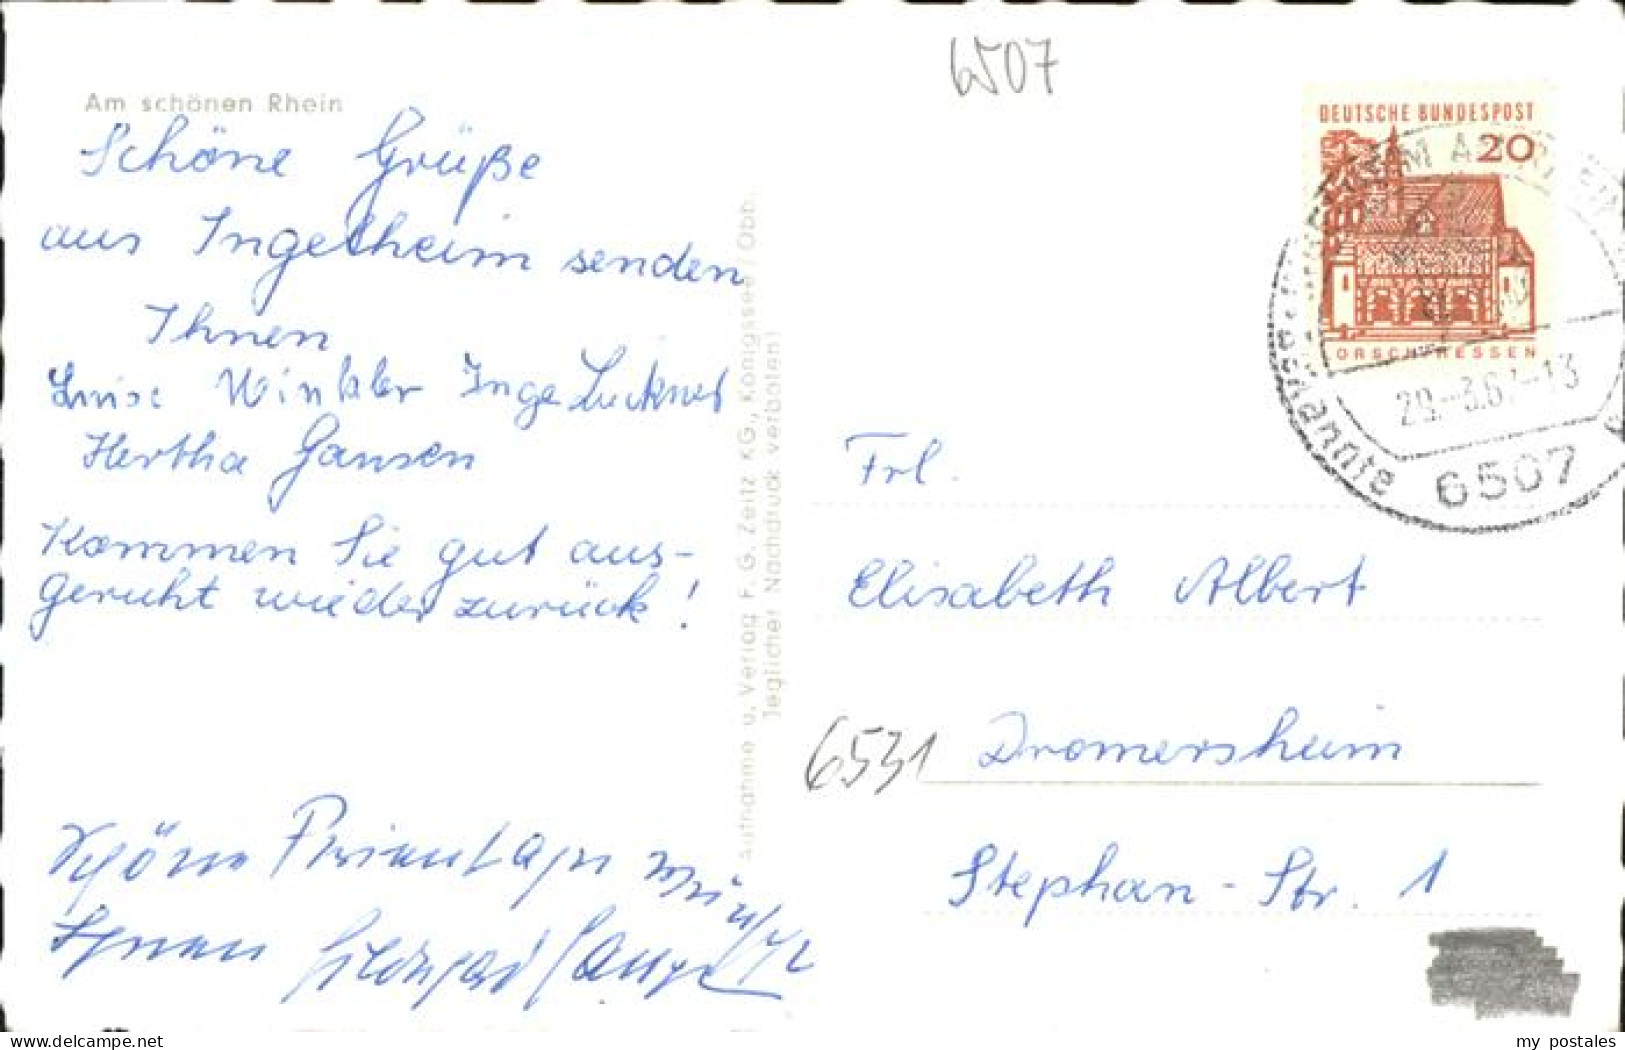 6507
Am schönen Rhein
Schöne Grüße
aus Ingelheim senden
Ihnen
Luise Winkler Inge Luckner
Hertha Gansen
Kommen Sie gut aus-
geruht wieder zurück!
Schöne Ferientage wünscht
Ihnen Hildegard
Aufnahme u. Verlag F. G. Zeitz KG., Königssee/Obb.
Jeglicher Nachdruck verboten!
DEUTSCHE BUNDESPOST
20
LORSCH/HESSEN
29.-3.67-13
6507
Frl.
Elisabeth Albert
6531 Dromersheim
Stephan-Str. 1
my_postales